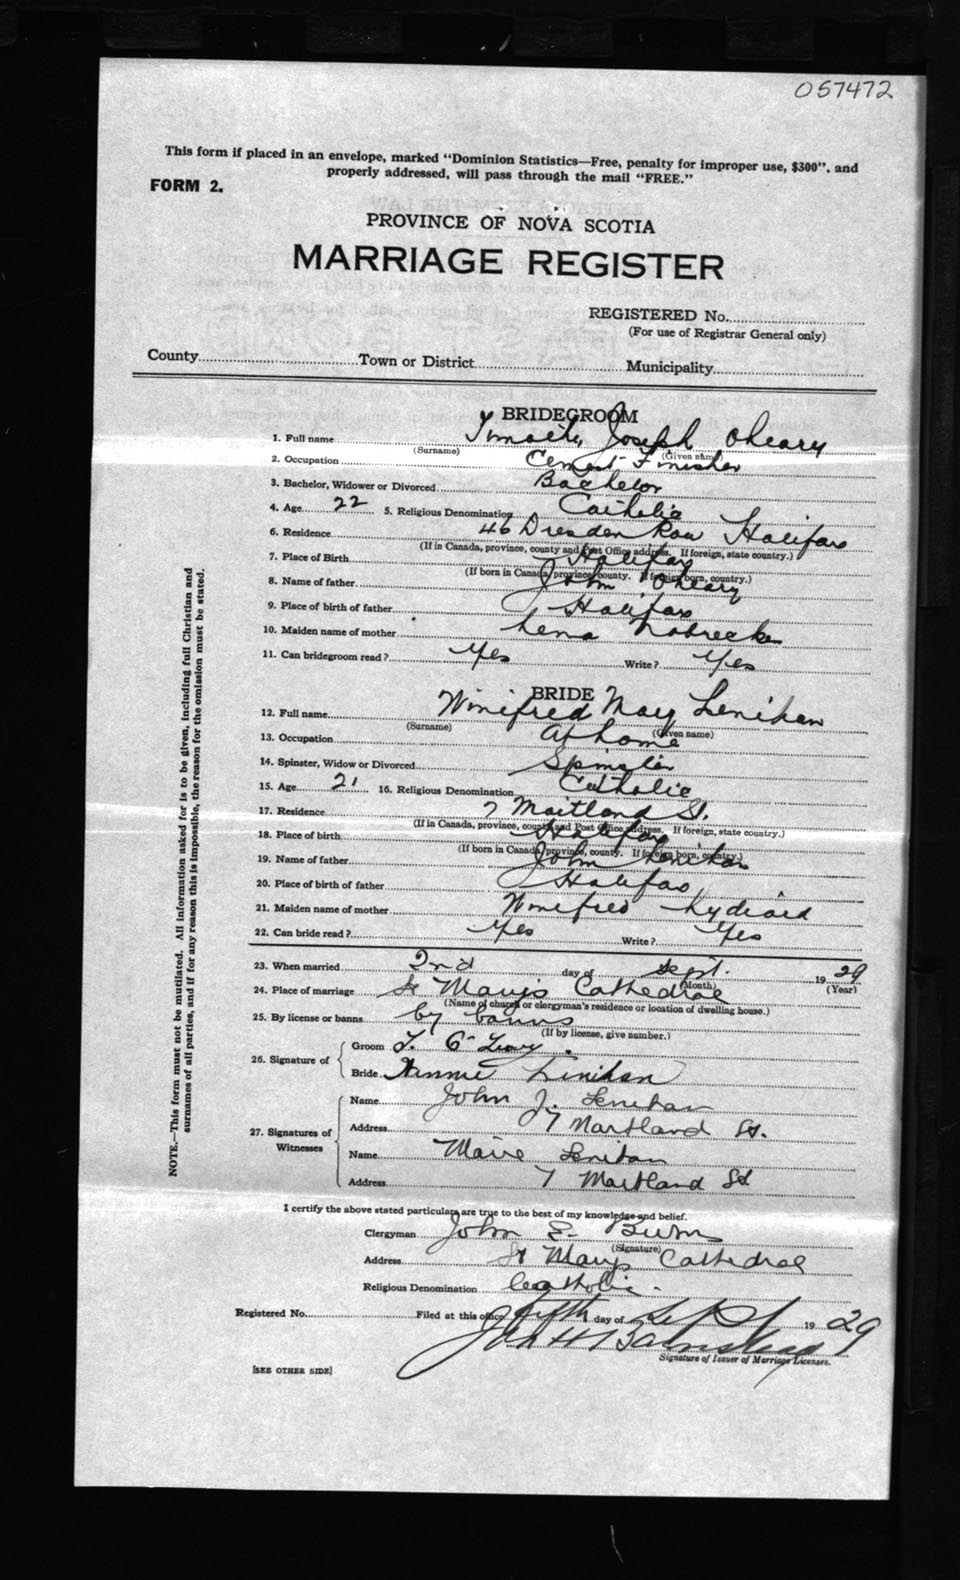 057472
This form if placed in an envelope, marked "Dominion Statistics—Free, penalty for improper use, $300", and
properly addressed, will pass through the mail "FREE."
FORM 2.
PROVINCE OF NOVA SCOTIA
MARRIAGE REGISTER
REGISTERED No.
(For use of Registrar General only)
County Town or District Municipality
BRIDEGROOM
1. Full name Timothy Joseph OLeary
(Surname) (Given name)
2. Occupation Cement Finisher
3. Bachelor, Widower or Divorced Bachelor
4. Age 22 5. Religious Denomination Catholic
6. Residence 46 Dresden Row Halifax
(If in Canada, province, county and Post Office address. If foreign, state country.)
7. Place of Birth Halifax
(If born in Canada, province, county. If foreign born, country.)
8. Name of father John OLeary
9. Place of birth of father Halifax
10. Maiden name of mother Lena
11. Can bridegroom read? Yes Write? Yes
BRIDE
12. Full name Winifred May Lenihan
(Surname) (Given name)
13. Occupation At home
14. Spinster, Widow or Divorced Spinster
15. Age 21 16. Religious Denomination Catholic
17. Residence 7 Maitland St.
(If in Canada, province, county and Post Office address. If foreign, state country.)
18. Place of birth Halifax
(If born in Canada, province, county. If foreign born, country.)
19. Name of father John Lenihan
20. Place of birth of father Halifax
21. Maiden name of mother Winifred
22. Can bride read? Yes Write? Yes
23. When married 2nd day of Sept. 1929
(Month) (Year)
24. Place of marriage St Mary's Cathedral
(Name of church or clergyman's residence or location of dwelling house.)
25. By license or banns by banns
(If by license, give number.)
26. Signature of Groom T. O'Leary.
Bride Winnie Linihan
27. Signatures of Witnesses
Name John J. Lenihan
Address 7 Maitland St.
Name Marie Lenihan
Address 7 Maitland St
I certify the above stated particulars are true to the best of my knowledge and belief.
Clergyman John E. Burns
(Signature)
Address St Mary's Cathedral
Religious Denomination Catholic.
Registered No. Filed at this office fifth day of Sept 1929
Signature of Issuer of Marriage Licenses.
[SEE OTHER SIDE]
NOTE.—This form must not be mutilated. All information asked for is to be given, including full Christian and
surnames of all parties, and if for any reason this is impossible, the reason for the omission must be stated.